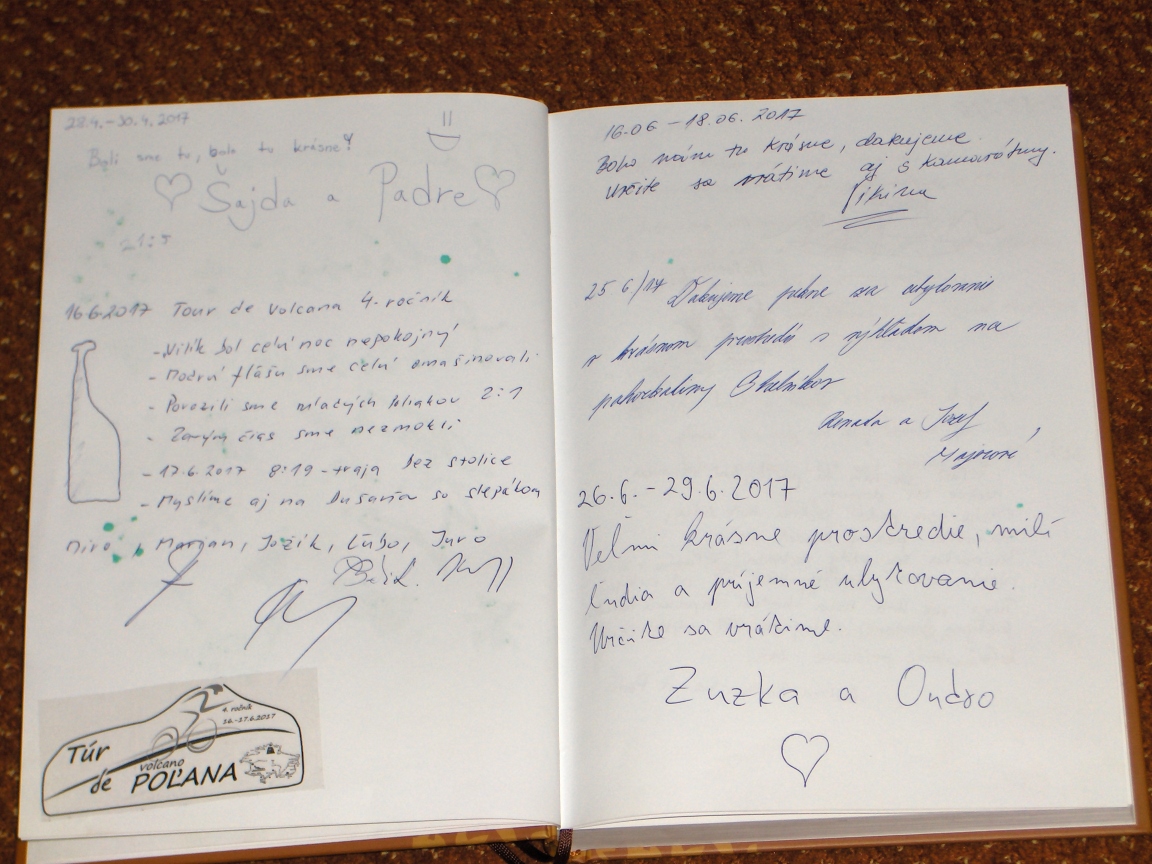 28.4.-30.4.2017
Boli sme tu, bolo tu krásne!
Sajda a Padre
21:5
16.6.2017 Tour de Volcana 4. ročník
- Vilik bol celú noc nepokojný
- Modrú fľašu sme celú
- Porazili sme mladých Poliakov 2:1
- čias sme nezmokli
- 17.6.2017 8:19 - traja bez stolice
- Myslíme aj na Dušana so slepákom
Miro, Marjan, Jožik, Ľubo, Juro
4. ročník
16.-17.6.2017
Túr
de volcano
POĽANA
16.06 - 18.06. 2017
Bolo nám tu krásne, ďakujeme.
Určite sa vrátime aj s kamarátmy.
25 6/17 Ďakujeme pekne za ubytovanie
v krásnom prostredí s výhľadom na
Renata a Jozef
26.6.-29.6.2017
Veľmi krásne prostredie, milí
ľudia a príjemné ubytovanie.
Určite sa vrátime.
Zuzka a Ondro